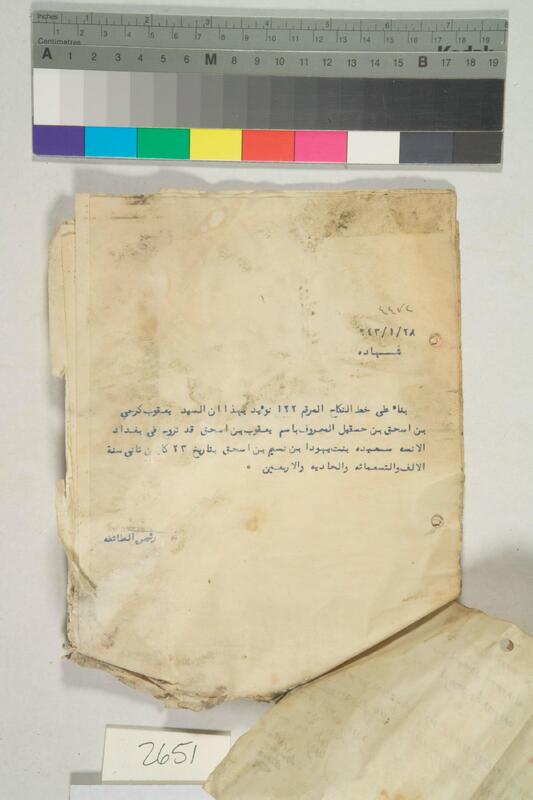 Inches 1 2 3 4 5 6 7 8
Centimetres 1 2 3 4 5 6 7 8 9 10 11 12 13 14 15 16 17 18 19
Kodak
A 1 2 3 4 5 6 M 8 9 10 11 12 13 14 15 B 17 18 19
٤٣/١/٢٨
شهاده
بناء على خط النكاح المرقم ١٢٢ نؤيد بهذا ان السيد يعقوب كرجي
بن اسحق بن حسقيل المعروف باسم يعقوب بن اسحق قد تزوج في بغداد
الانسه سعيده بنت يهودا بن نسيم بن اسحق بتاريخ ٢٣ كانون ثاني سنة
الالف والتسعمائه والحاديه والاربعين
رئيس الطائفه
2651